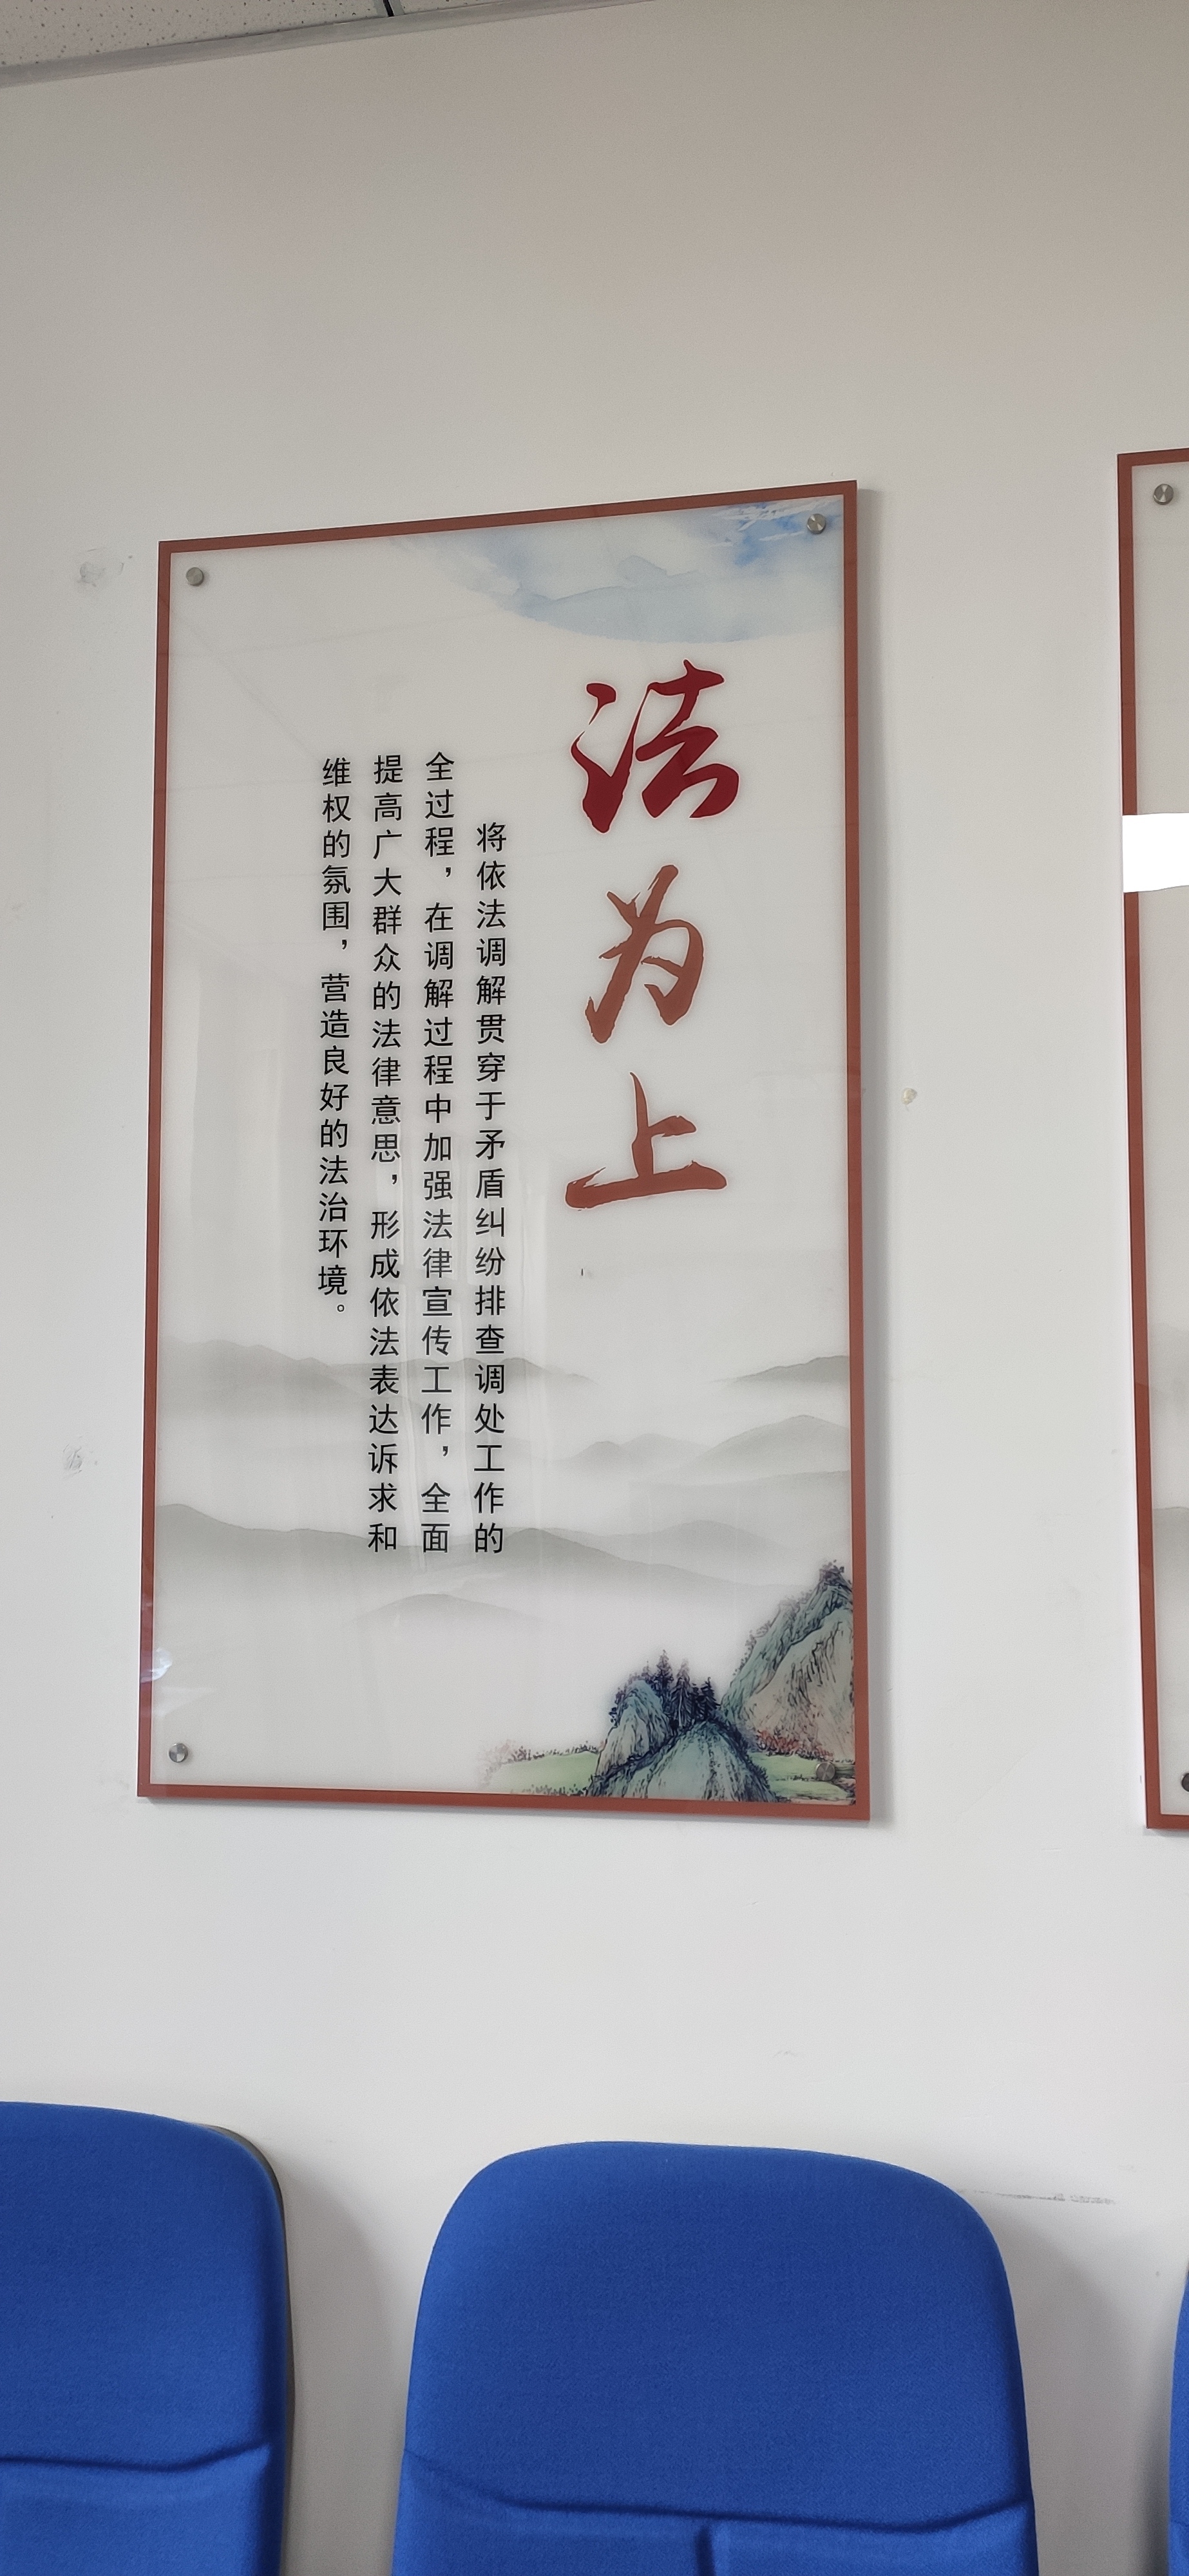 法为上
将依法调解贯穿于矛盾纠纷排查调处工作的
全过程，在调解过程中加强法律宣传工作，全面
提高广大群众的法律意思，形成依法表达诉求和
维权的氛围，营造良好的法治环境。